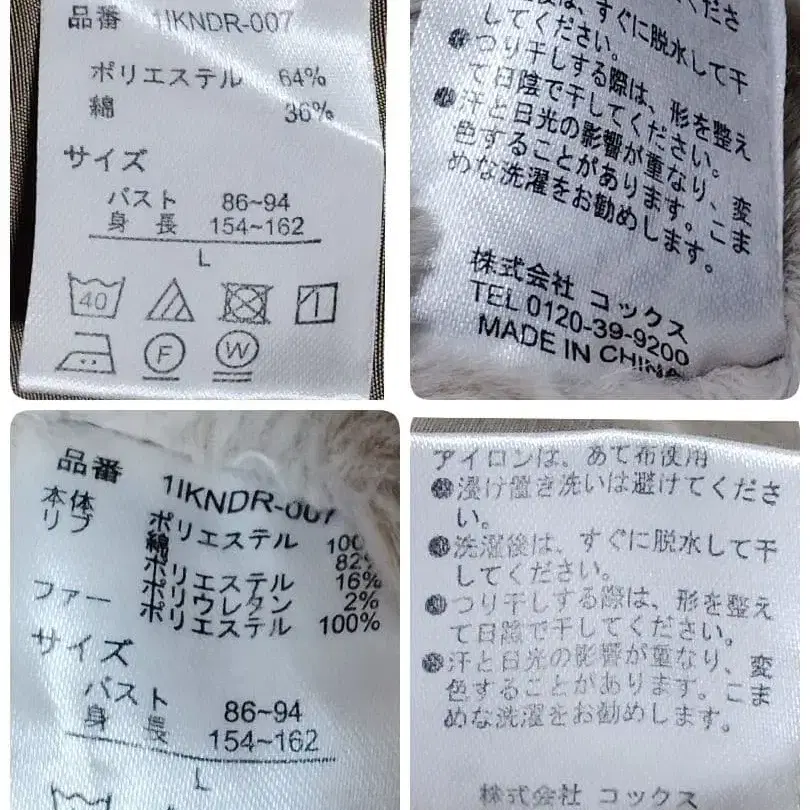 品番 1IKNDR-007
ポリエステル 64%
綿 36%
サイズ
バスト 86~94
身長 154~162
L
40
F
W
してください。
つり干しする際は、形を整え
て日陰で干してください。
汗と日光の影響が重なり、変
色することがあります。こま
めな洗濯をお勧めします。
株式会社 コックス
TEL 0120-39-9200
MADE IN CHINA
品番 1IKNDR-007
本体 ポリエステル 100
リブ 綿 82%
ポリエステル 16%
ポリウレタン 2%
ファー ポリエステル 100%
サイズ
バスト 86~94
身長 154~162
L
アイロンは、あて布使用
浸け置き洗いは避けてくださ
い。
洗濯後は、すぐに脱水して干
してください。
つり干しする際は、形を整え
て日陰で干してください。
汗と日光の影響が重なり、変
色することがあります。こま
めな洗濯をお勧めします。
株式会社 コックス